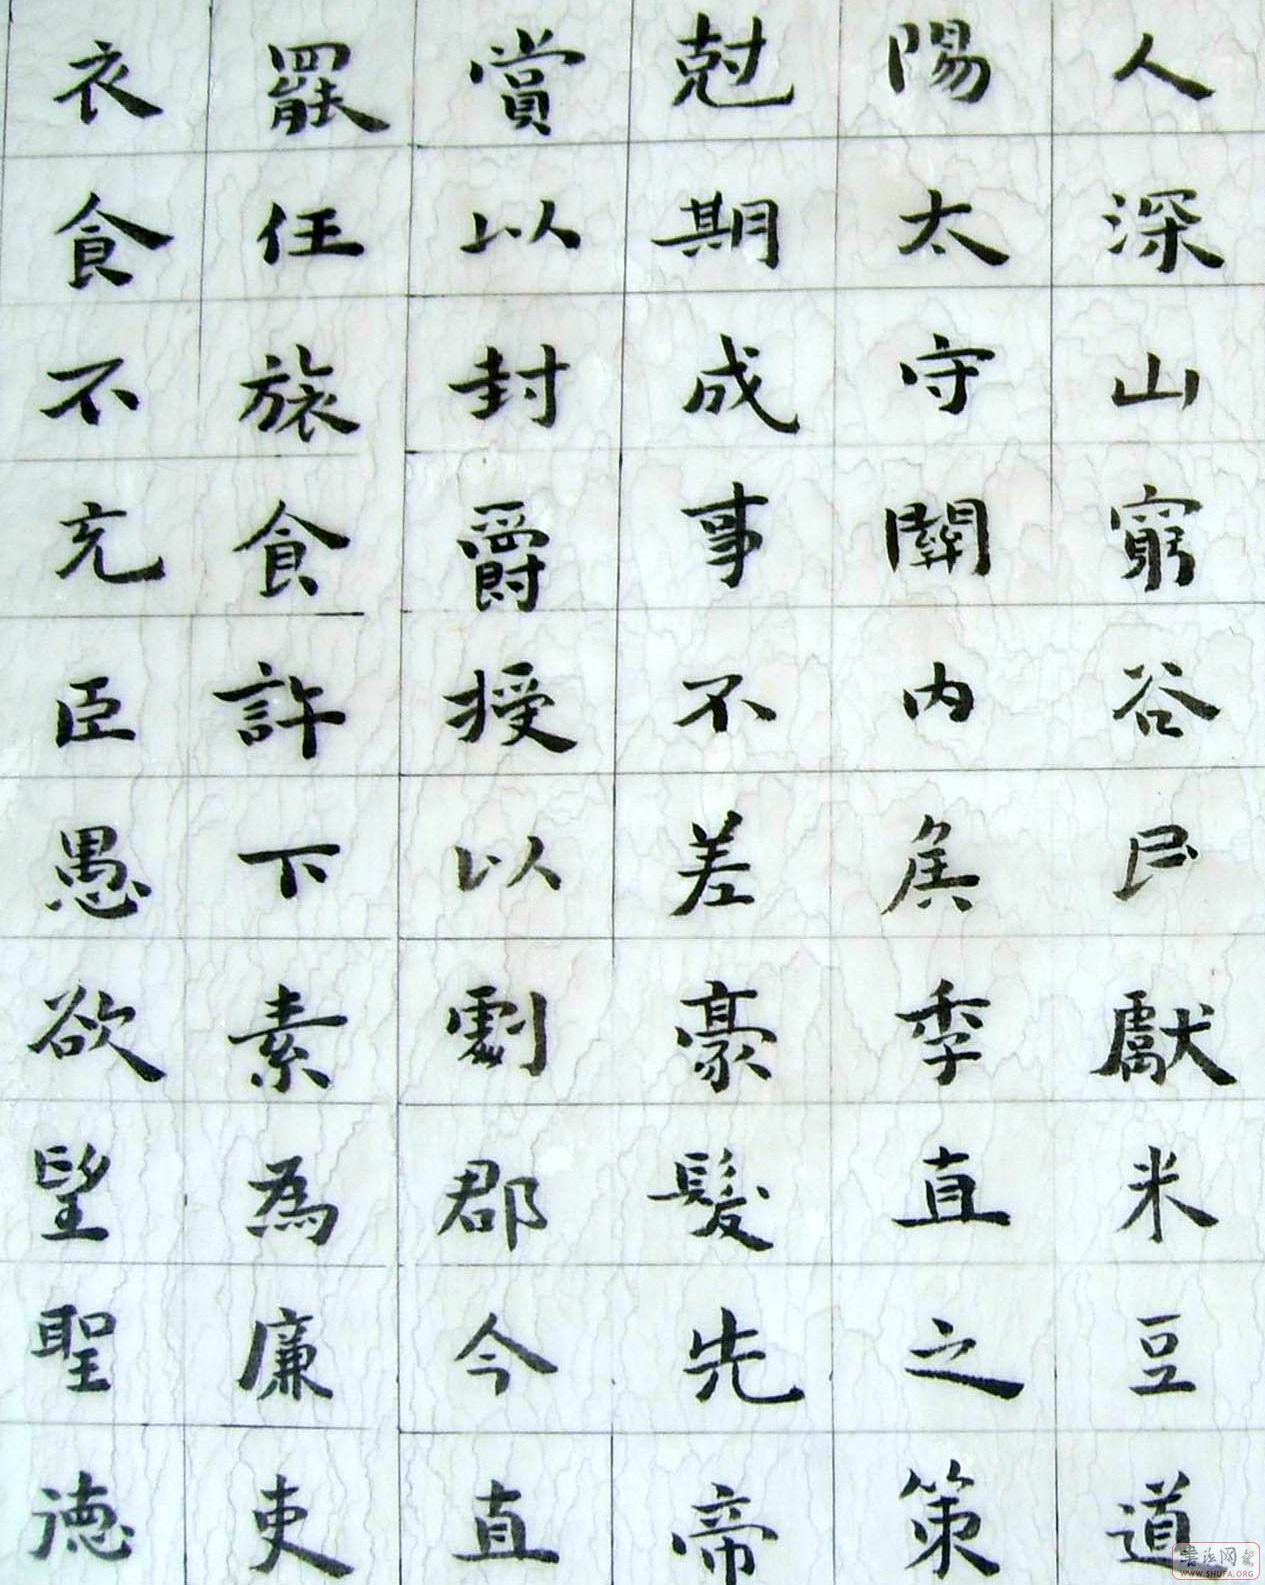 人深山窮谷民獻米豆道
陽太守關内侯季直之策
尅期成事不差豪髮先帝
賞以封爵授以劇郡今直
罷任旅食許下素為廉吏
衣食不充臣愚欲望聖德
書法网
WWW.SHUFA.ORG